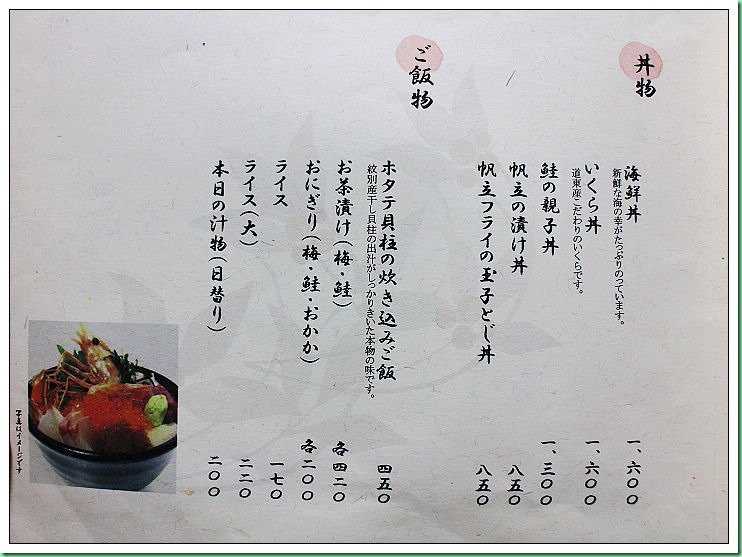 丼物
海鮮丼 一、六〇〇
新鮮な海の幸がたっぷりのっています。
いくら丼 一、六〇〇
道東産こだわりのいくらです。
鮭の親子丼 一、三〇〇
帆立の漬け丼 八五〇
帆立フライの玉子とじ丼 八五〇
ご飯物
ホタテ貝柱の炊き込みご飯 四五〇
紋別産干し貝柱の出汁がしっかりきいた本物の味です。
お茶漬け(梅・鮭) 各四二〇
おにぎり(梅・鮭・おかか) 各二〇〇
ライス 一七〇
ライス(大) 二二〇
本日の汁物(日替り) 二〇〇
写真はイメージです